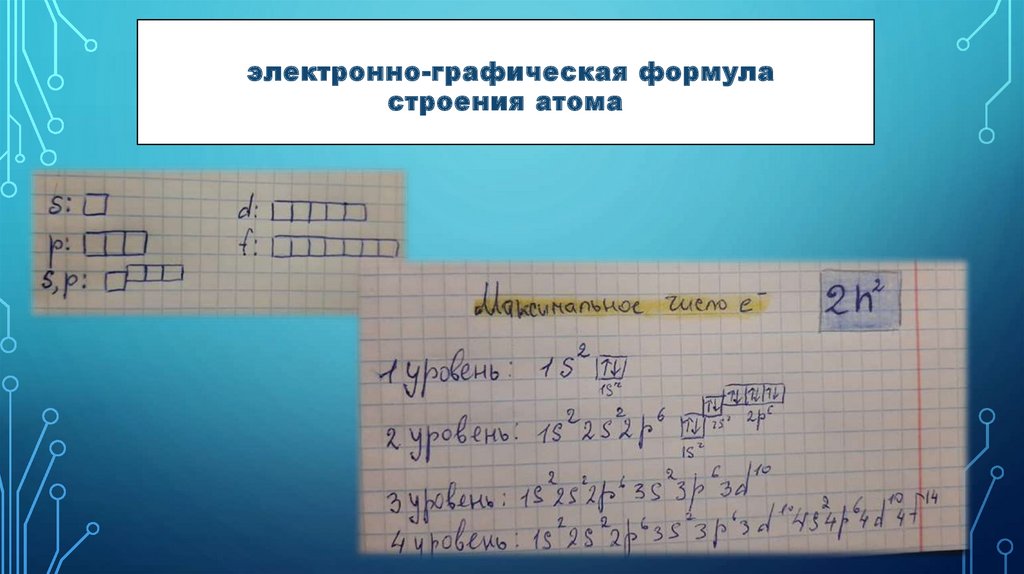 электронно-графическая формула
строения атома
s:
p:
s,p:
d:
f:
Максимальное число e⁻
2n²
1 уровень: 1s² ↑↓
1s²
2 уровень: 1s²2s²2p⁶ ↑↓ ↑↓ ↑↓ ↑↓ ↑↓
1s² 2s² 2p⁶
3 уровень: 1s²2s²2p⁶3s²3p⁶3d¹⁰
4 уровень: 1s²2s²2p⁶3s²3p⁶3d¹⁰4s²4p⁶4d¹⁰4f¹⁴